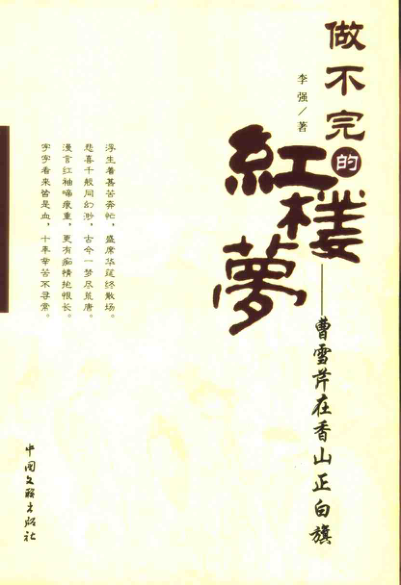 做不完的
紅楼夢
——曹雪芹在香山正白旗
李强/著
浮生着甚苦奔忙，盛席华筵终散场。
悲喜千般同幻渺，古今一梦尽荒唐。
漫言红袖啼痕重，更有痴情抱恨长。
字字看来皆是血，十年辛苦不寻常。
中国文聯出版社